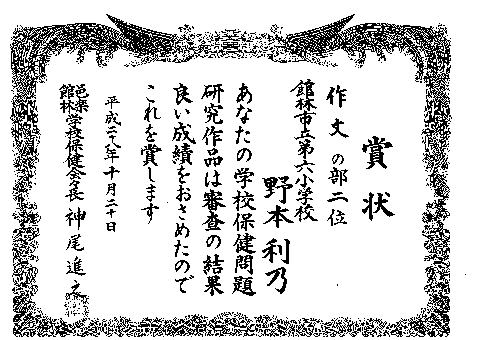 賞状
作文の部二位
館林市立第六小学校
野本利乃
あなたの学校保健問題
研究作品は審査の結果
良い成績をおさめたので
これを賞します
平成二八年十月二十日
邑楽館林学校保健会長 神尾進之